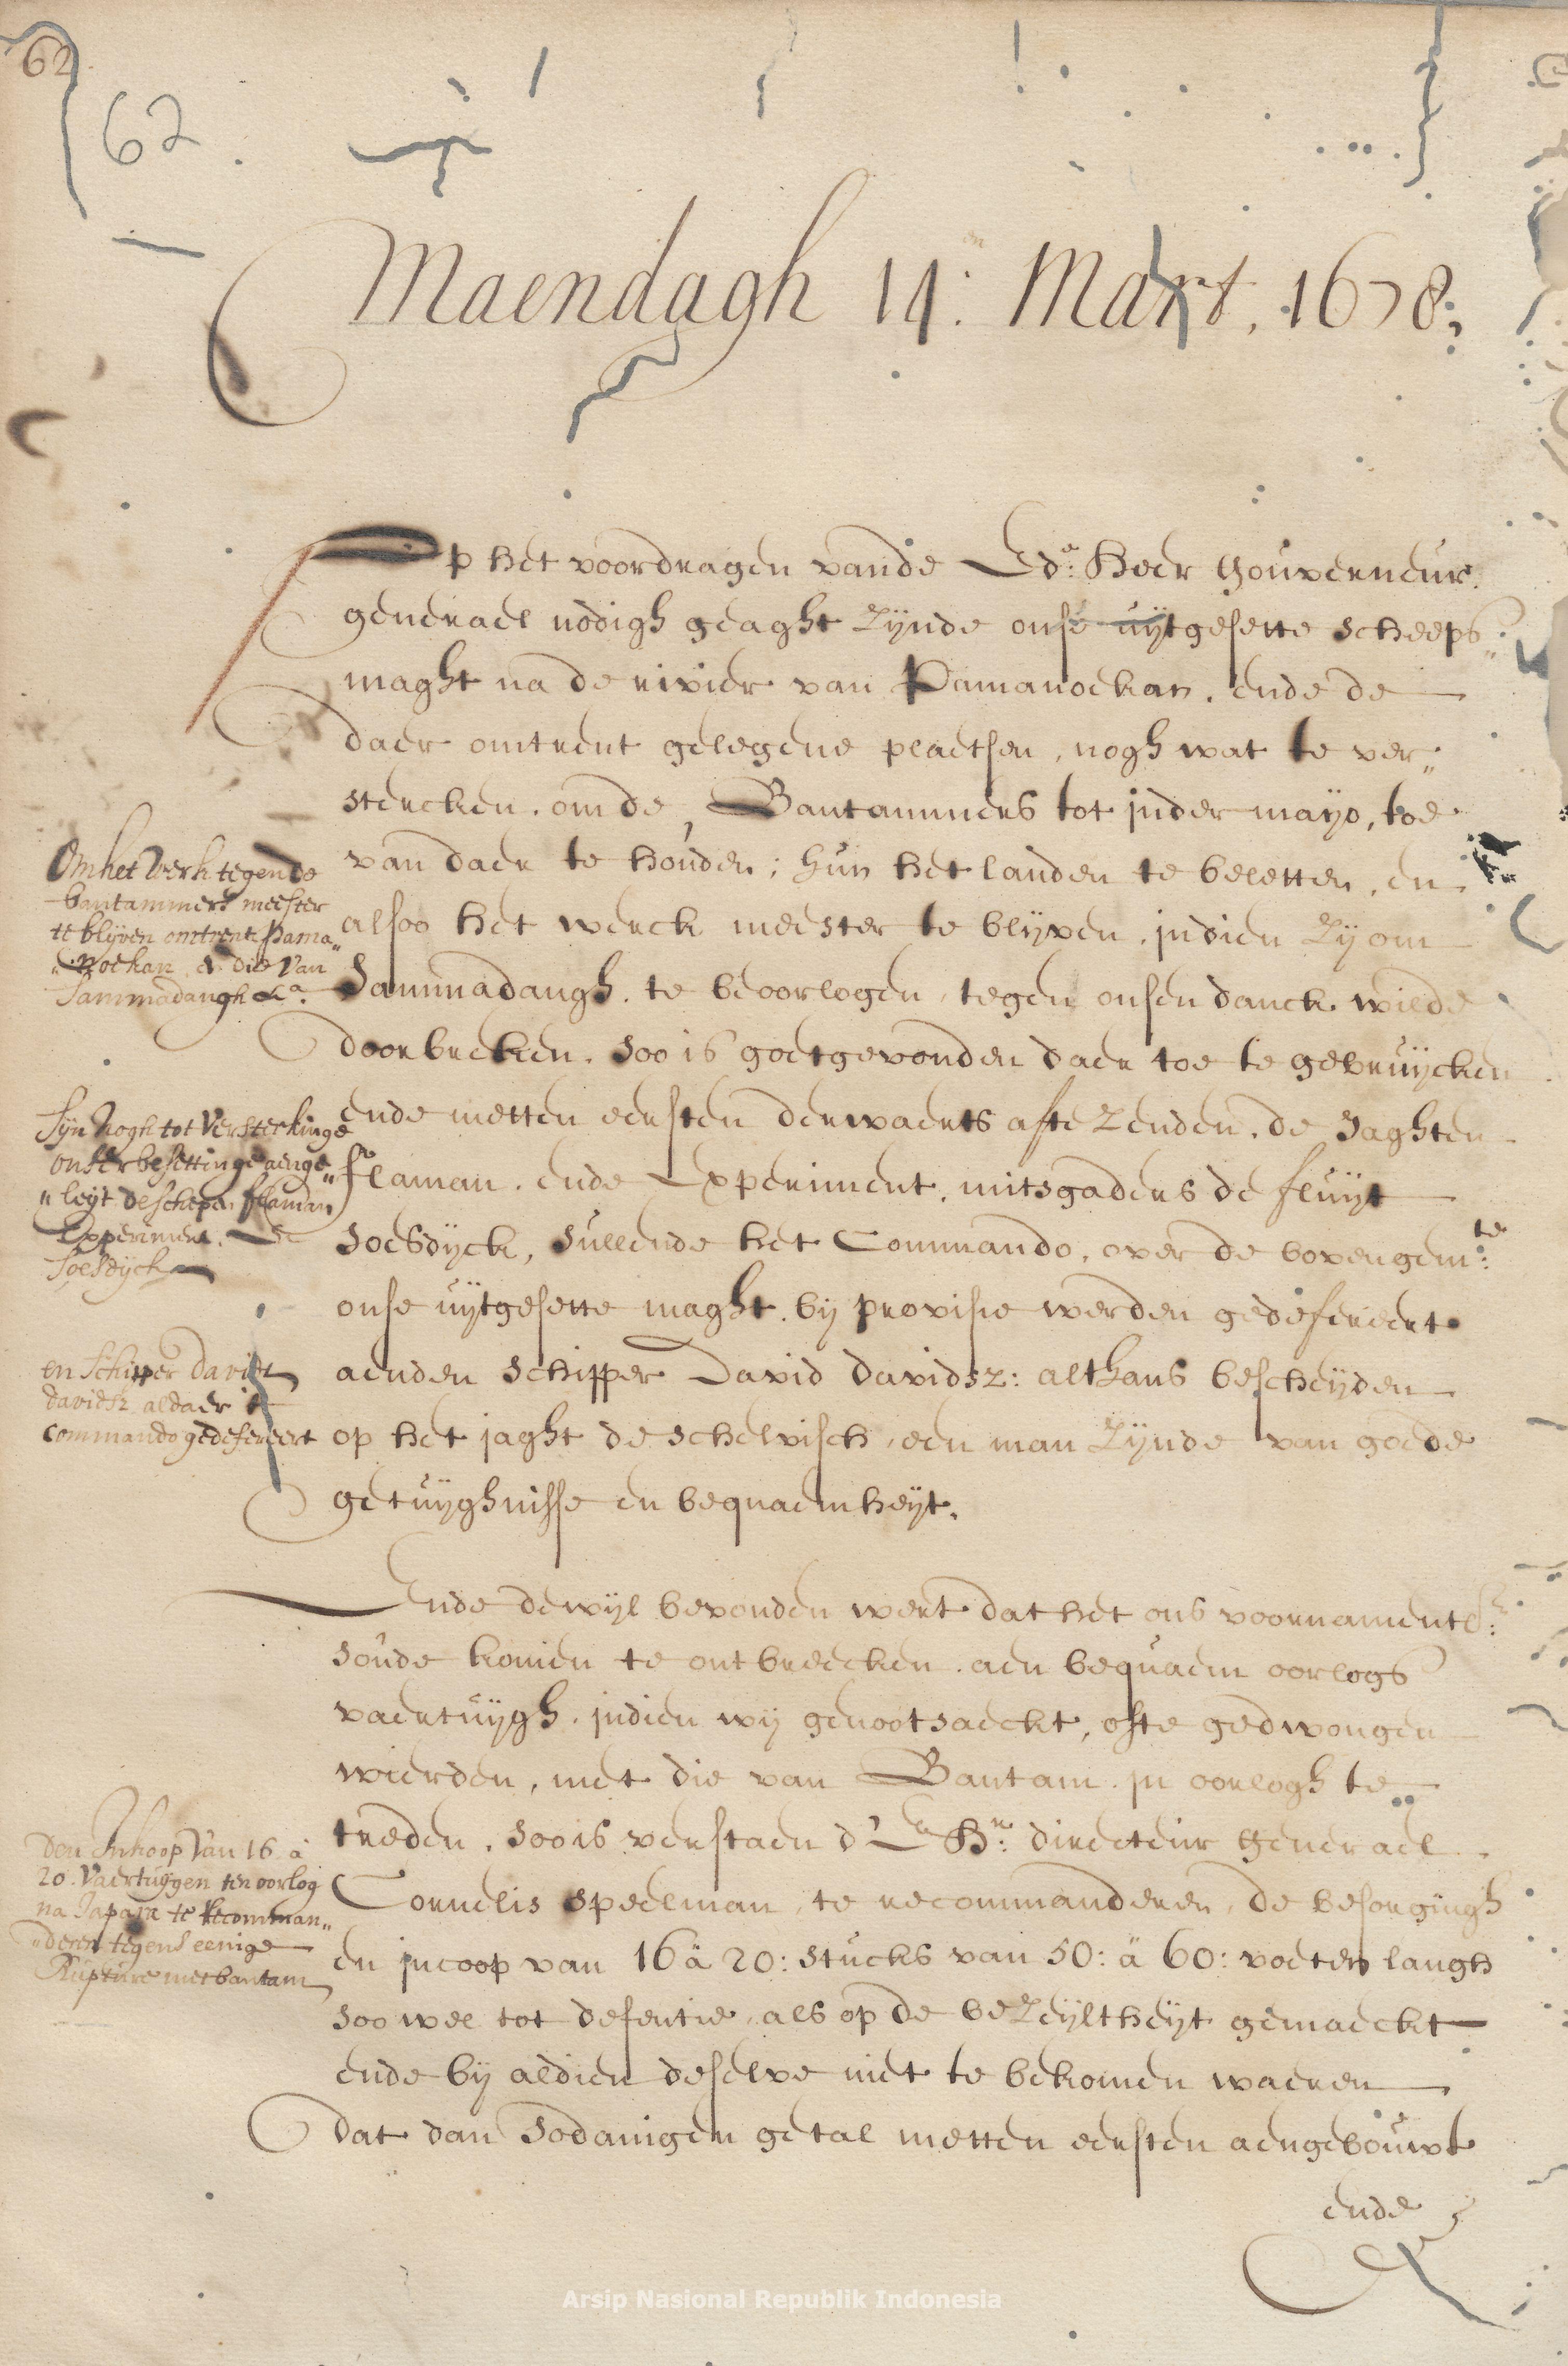 62
62
Maendagh 14.en Mart. 1678,
Op het voordragen vande Ede: Heer Gouverneur
generael nodigh geaght zynde onse uÿtgesette scheeps„
maght na de rivier van Pamanoekan. ende de
daer omtrent gelegene plaetsen, nogh wat te ver„
stercken. om de Bantammers tot jndermaÿo, toe
van daer te houden; hun het landen te beletten, en
alsoo het werck meester te blijven, jndien zÿ om
Sammadangh. te beoorlogen, tegen onsen danck wilde
doorbreken. soo is goetgevonden daer toe te gebruÿcken
ende metten eersten derwaerts afte zenden. de Jaghten
flaman. ende Experiment, mitsgaders de fluÿt
Soesdÿck, sullende het Commando, over de bovengem:te
onse uÿtgesette maght. bij provisie werden gedefereert
aenden schipper David davidsz: althans bescheÿden
op het jaght de schelvisch, een man zÿnde van goede
getuÿghnisse en bequaemheÿt.
Om het Werk tegen de
bantammers meester
te blijven omtrent Pama„
„noekan, & die van
Sammadangh &a.
Sijn nogh tot Versterkinge
onser besettinge aenge„
„leÿt de schepen flaman
Experiment. en
Soesdÿck
en Schipper david
davidsz aldaer 't
commando gedefereert
Ende dewijl bevonden wert dat het ons voornamentl:
soude komen te ontbreecken. aen bequaem oorlogs
vaertuÿgh. jndien wij genootsaeckt, ofte gedwongen
wierden, met die van Bantam. jn oorlogh te
treden. soo is verstaen d' Ee Hr: directeur generael
Cornelis Speelman, te recommanderen, de besorgingh
en jncoop van 16 â 20: stucks van 50: â 60: voeten langh
soo wel tot defentie, als op de bezeÿltheÿt gemaeckt
ende bij aldien deselve niet te bekomen waeren
dat dan sodanigen getal metten eersten aengebouwt
ende
Den Inkoop van 16 â
20. Vaertuÿgen ten oorlog
na Japara te recomman„
„deren tegens eenige
Rupture met bantam
Arsip Nasional Republik Indonesia